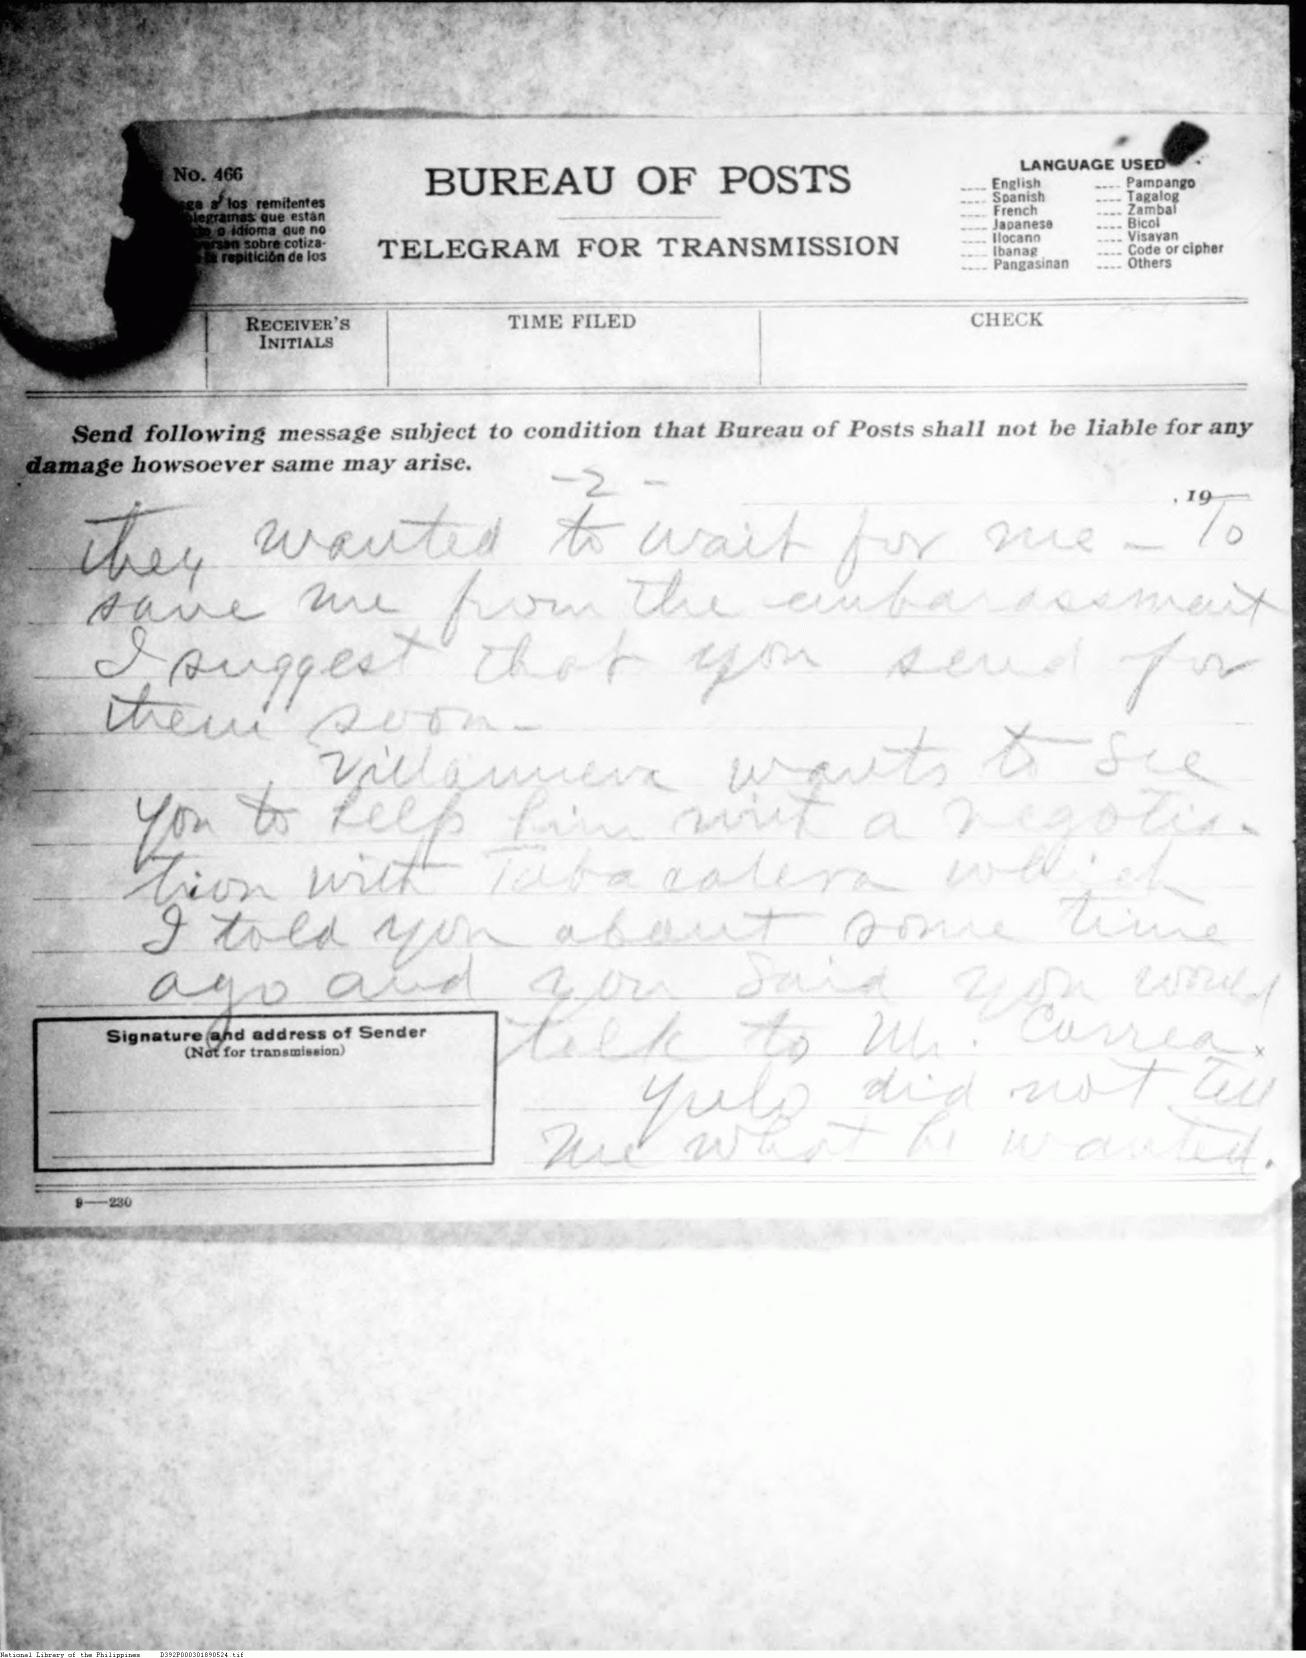 No. 466
a los remitentes
legramas que están
o idioma que no
sobre cotiza-
repitición de los
BUREAU OF POSTS
TELEGRAM FOR TRANSMISSION
LANGUAGE USED
.... English .... Pampango
.... Spanish .... Tagalog
.... French .... Zambal
.... Japanese .... Bicol
.... Ilocano .... Visayan
.... Ibanag .... Code or cipher
.... Pangasinan .... Others
RECEIVER'S
INITIALS
TIME FILED
CHECK
Send following message subject to condition that Bureau of Posts shall not be liable for any
damage howsoever same may arise.
-2-
, 19
they wanted to wait for me - To
save me from the embarassment
I suggest that you send for
them soon -
Villanueva wants to see
you to help him with a negotia-
tion with Tabacalera which
I told you about some time
ago and you said you would
talk to Mr. Correa.
Yulo did not tell
me what he wanted.
Signature and address of Sender
(Not for transmission)
9—230
National Library of the Philippines D392P000301890524.tif